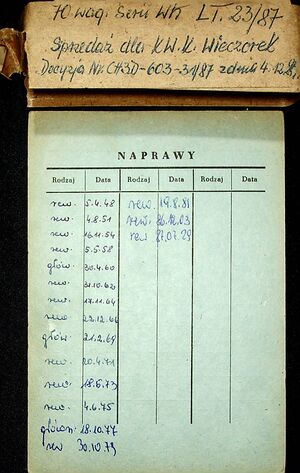 10 wagi Serii Wh LT. 23/87
Sprzedaż dla K.W.K. Wieczorek
Decyzja Nr CH3D-603-31/87 z dnia 4.12.87
NAPRAWY
Rodzaj Data Rodzaj Data Rodzaj Data
rew. 5.4.48 rew. 19.8.81
rew. 4.8.51 rew. 86.12.03
rew. 16.11.54 rew 87.07.29
rew. 5.5.58
główn. 30.4.60
rew. 31.10.62
rew. 17.11.64
rew. 22.12.66
główn. 21.2.69
rew. 20.4.71
rew. 18.6.73
rew. 4.6.75
główn. 18.10.77
rew 30.10.79